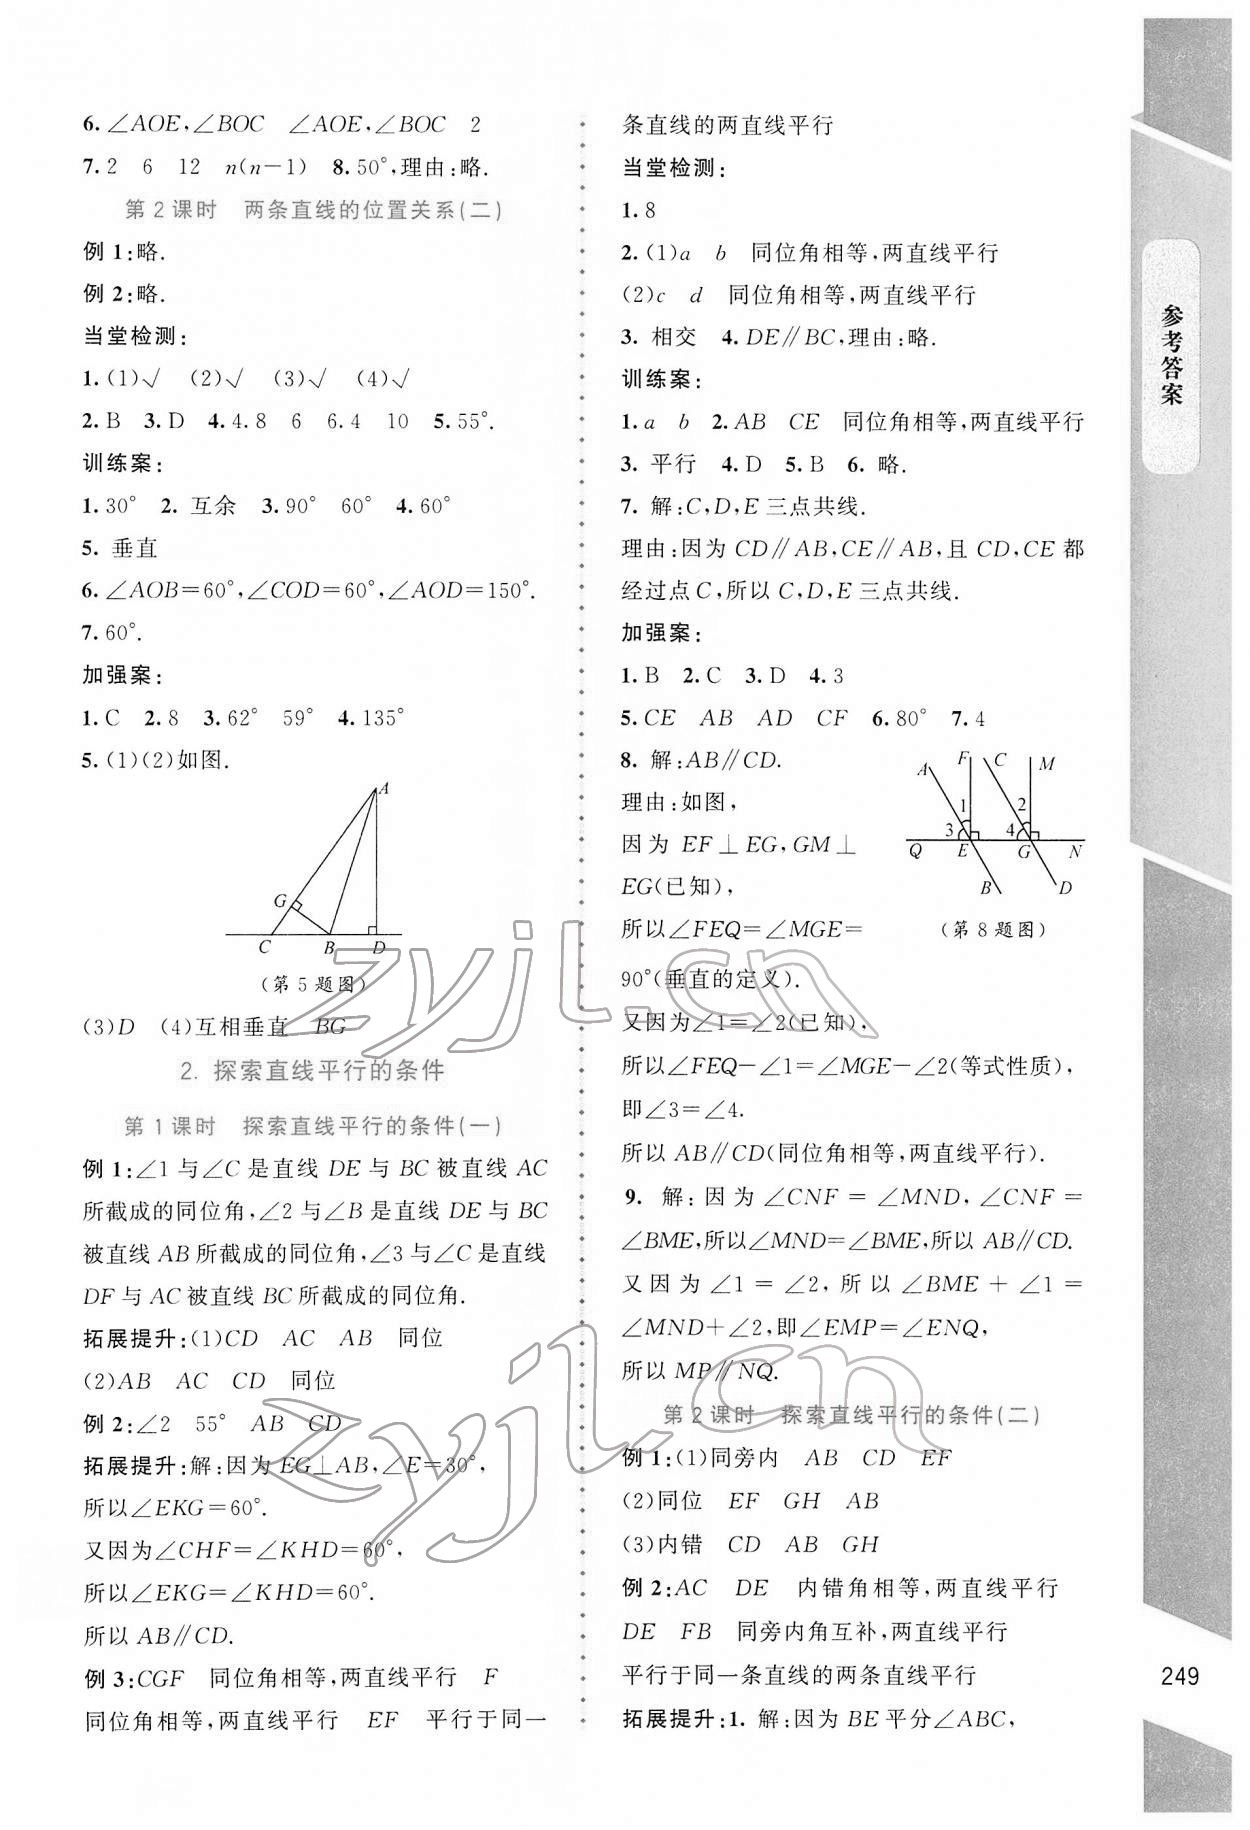 6.∠AOE,∠BOC ∠AOE,∠BOC 2
7.2 6 12 n(n－1) 8.50°,理由:略.
第2课时 两条直线的位置关系(二)
例1:略.
例2:略.
当堂检测:
1.(1)√ (2)√ (3)√ (4)√
2.B 3.D 4.4.8 6 6.4 10 5.55°.
训练案:
1.30° 2. 互余 3.90° 60° 4.60°
5. 垂直
6.∠AOB＝60°,∠COD＝60°,∠AOD＝150°.
7.60°.
加强案:
1.C 2.8 3.62° 59° 4.135°
5.(1)(2)如图.
A
G
C B D
(第5题图)
(3)D (4)互相垂直 BG
2. 探索直线平行的条件
第1课时 探索直线平行的条件(一)
例1:∠1与∠C是直线DE与BC被直线AC
所截成的同位角,∠2与∠B是直线DE与BC
被直线AB所截成的同位角,∠3与∠C是直线
DF与AC被直线BC所截成的同位角.
拓展提升:(1)CD AC AB 同位
(2)AB AC CD 同位
例2:∠2 55° AB CD
拓展提升:解:因为EG⊥AB,∠E＝30°,
所以∠EKG＝60°.
又因为∠CHF＝∠KHD＝60°,
所以∠EKG＝∠KHD＝60°.
所以AB∥CD.
例3:CGF 同位角相等,两直线平行 F
同位角相等,两直线平行 EF 平行于同一
条直线的两直线平行
当堂检测:
1.8
2.(1)a b 同位角相等,两直线平行
(2)c d 同位角相等,两直线平行
3. 相交 4.DE∥BC,理由:略.
训练案:
1.a b 2.AB CE 同位角相等,两直线平行
3. 平行 4.D 5.B 6. 略.
7. 解:C,D,E三点共线.
理由:因为CD∥AB,CE∥AB,且CD,CE都
经过点C,所以C,D,E三点共线.
加强案:
1.B 2.C 3.D 4.3
5.CE AB AD CF 6.80° 7.4
8. 解:AB∥CD.
理由:如图,
因为EF⊥EG,GM⊥
EG(已知),
所以∠FEQ＝∠MGE＝
A F C M
1 2
3 4
Q E G N
B D
(第8题图)
90°(垂直的定义).
又因为∠1＝∠2(已知),
所以∠FEQ－∠1＝∠MGE－∠2(等式性质),
即∠3＝∠4.
所以AB∥CD(同位角相等,两直线平行).
9. 解:因为∠CNF＝∠MND,∠CNF＝
∠BME,所以∠MND＝∠BME,所以AB∥CD.
又因为∠1＝∠2,所以∠BME＋∠1＝
∠MND＋∠2,即∠EMP＝∠ENQ,
所以MP∥NQ.
第2课时 探索直线平行的条件(二)
例1:(1)同旁内 AB CD EF
(2)同位 EF GH AB
(3)内错 CD AB GH
例2:AC DE 内错角相等,两直线平行
DE FB 同旁内角互补,两直线平行
平行于同一条直线的两条直线平行
拓展提升:1. 解:因为BE平分∠ABC,
参考答案
249
zyjl.cn
zyjl.cn